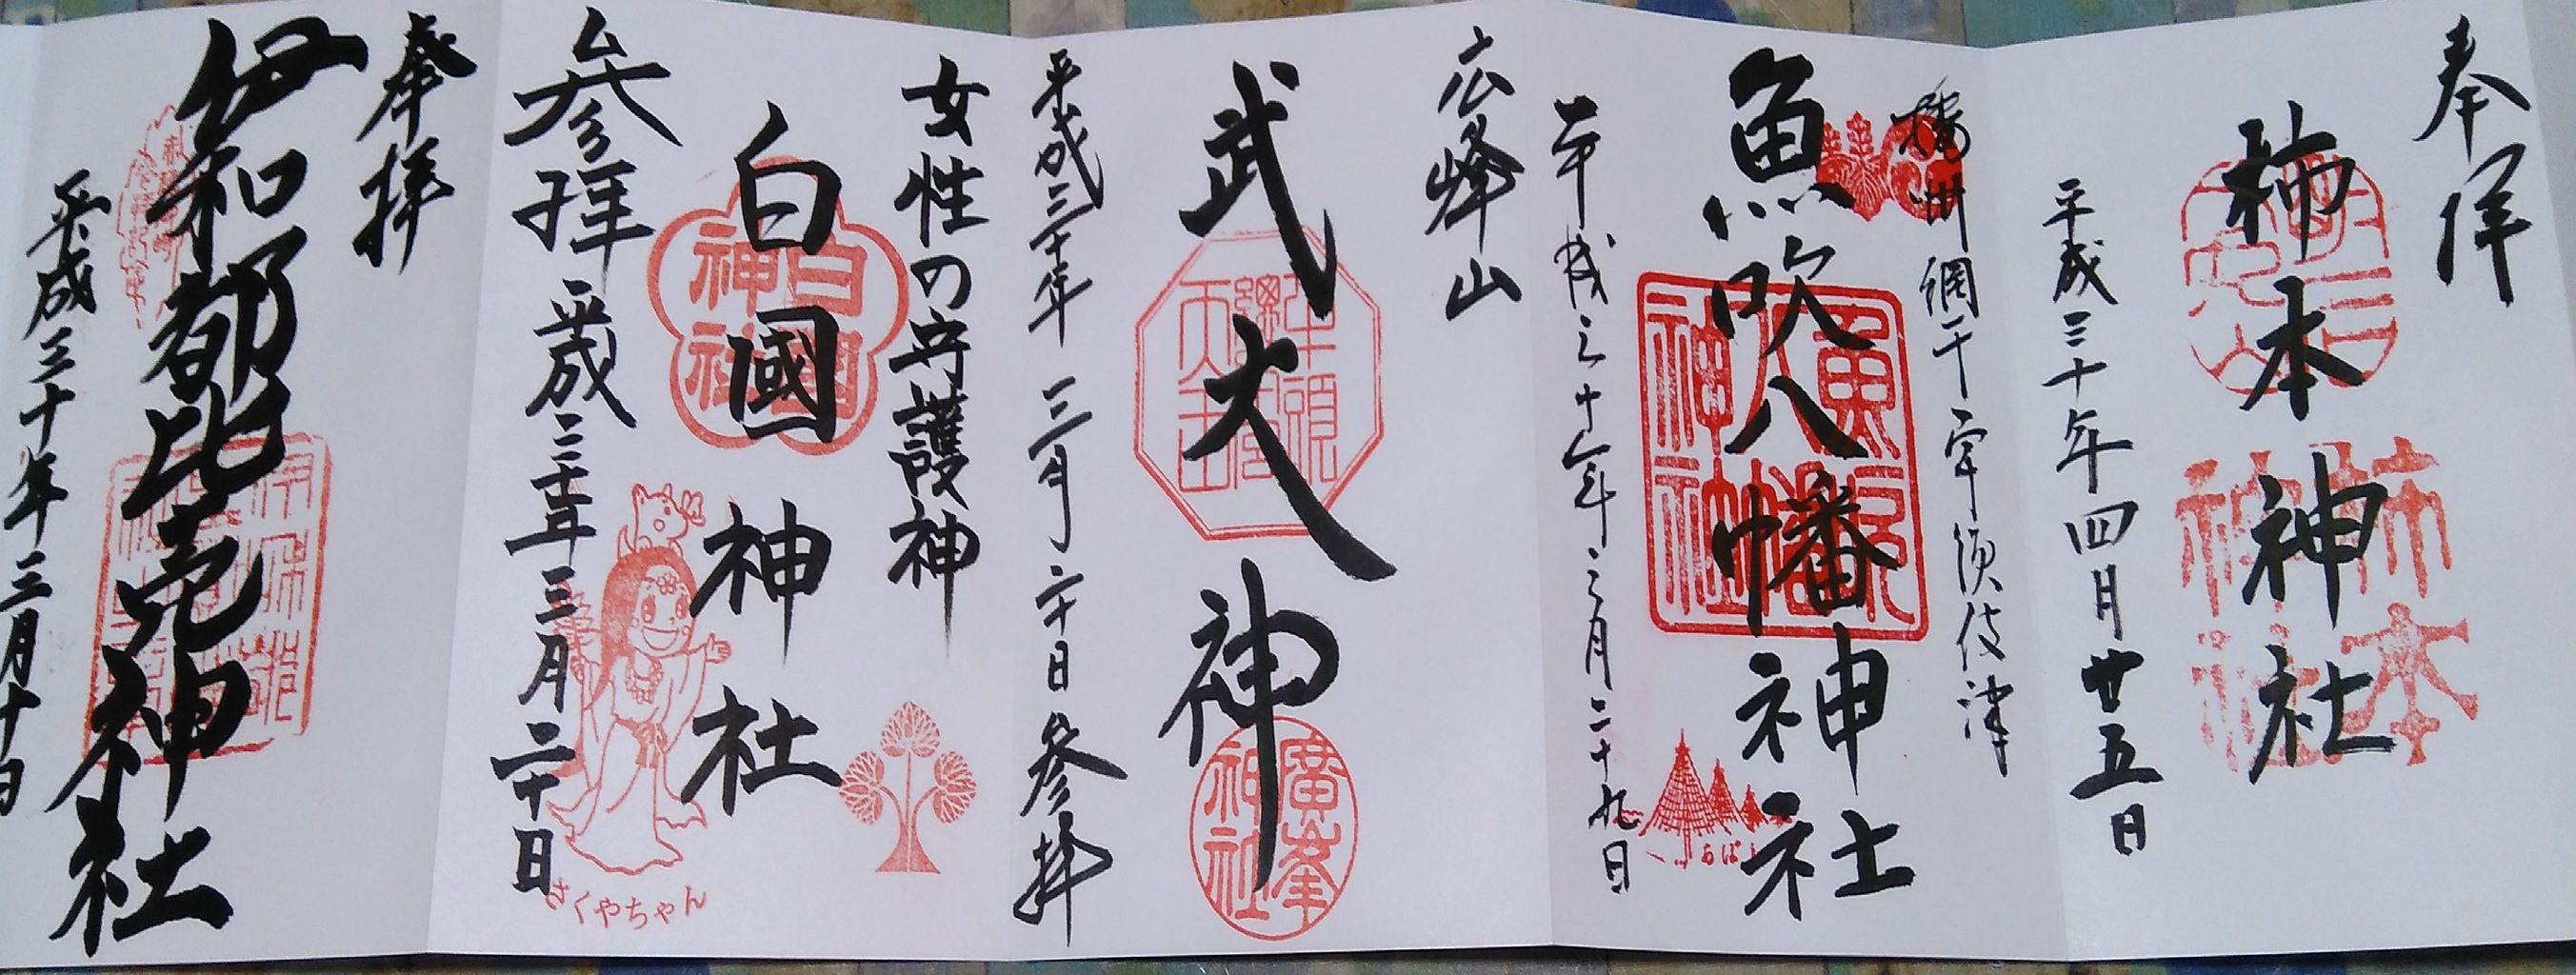 奉拝
柿本神社
柿本神社
平成三十年四月廿五日
播州網干宇須伎津
魚吹八幡神社
魚吹八幡神社
平成三十年三月二十九日
広峰山
武大神
牛頭天王
廣峯神社
平成三十年三月二十日参拝
女性の守護神
白國神社
白國神社
参拝
平成三十年三月二十日
さくやちゃん
奉拝
伊和都比売神社
平成三十年三月十日